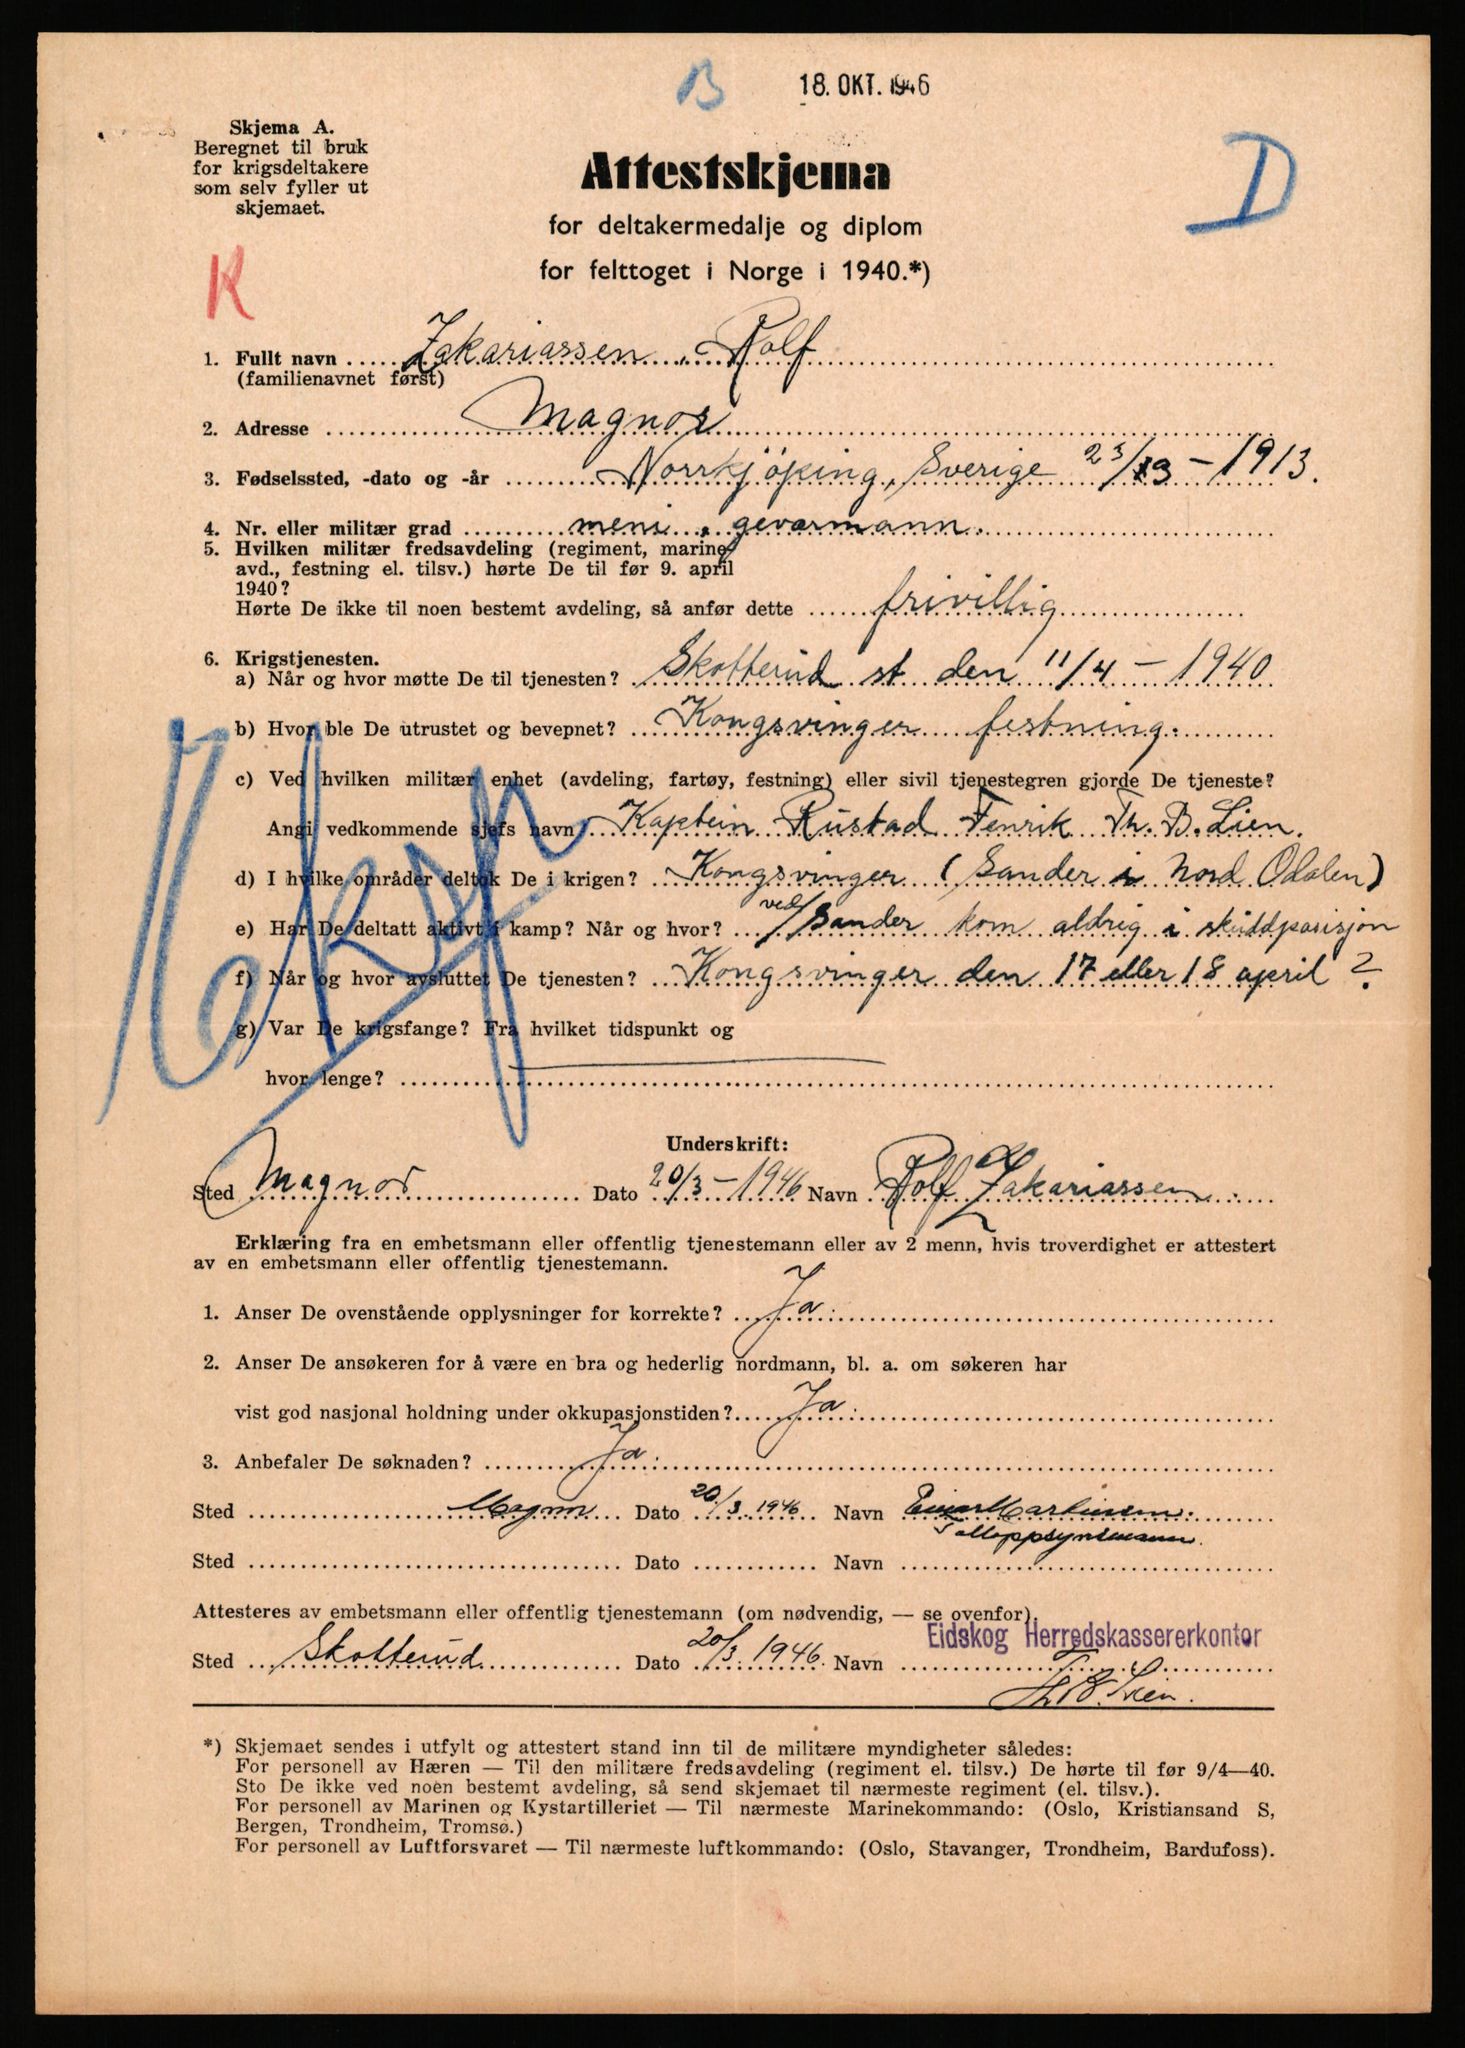 B
18. OKT. 1946
Skjema A.
Beregnet til bruk
for krigsdeltakere
som selv fyller ut
skjemaet.
D
Attestskjema
for deltakermedalje og diplom
for felttoget i Norge i 1940.*)
K
1. Fullt navn Zakariassen, Rolf
(familienavnet først)
2. Adresse Magnor
3. Fødselssted, -dato og -år Norrkjøping, Sverige 23/3 - 1913.
4. Nr. eller militær grad meni, geværmann.
5. Hvilken militær fredsavdeling (regiment, marine-
avd., festning el. tilsv.) hørte De til før 9. april
1940?
Hørte De ikke til noen bestemt avdeling, så anfør dette frivillig
6. Krigstjenesten.
a) Når og hvor møtte De til tjenesten? Skotterud st den 11/4 - 1940
b) Hvor ble De utrustet og bevepnet? Kongsvinger festning.
c) Ved hvilken militær enhet (avdeling, fartøy, festning) eller sivil tjenestegren gjorde De tjeneste?
Angi vedkommende sjefs navn Kaptein Rustad Fenrik Th. B. Lien.
d) I hvilke områder deltok De i krigen? Kongsvinger (Sander i Nord Odalen)
e) Har De deltatt aktivt i kamp? Når og hvor? ved Sander kom aldrig i skuddposisjon
f) Når og hvor avsluttet De tjenesten? Kongsvinger den 17 eller 18 april ?
g) Var De krigsfange? Fra hvilket tidspunkt og
hvor lenge?
Underskrift:
Sted Magnor Dato 20/3 - 1946 Navn Rolf Zakariassen
Erklæring fra en embetsmann eller offentlig tjenestemann eller av 2 menn, hvis troverdighet er attestert
av en embetsmann eller offentlig tjenestemann.
1. Anser De ovenstående opplysninger for korrekte? Ja.
2. Anser De ansøkeren for å være en bra og hederlig nordmann, bl. a. om søkeren har
vist god nasjonal holdning under okkupasjonstiden? Ja.
3. Anbefaler De søknaden? Ja.
Sted Magnor Dato 20/3 1946 Navn Martinsen
Tolloppsynsmann.
Sted Dato Navn
Attesteres av embetsmann eller offentlig tjenestemann (om nødvendig, — se ovenfor).
Eidskog Herredskassererkontor
Sted Skotterud Dato 20/3 1946. Navn
Th B. Lien.
*) Skjemaet sendes i utfylt og attestert stand inn til de militære myndigheter således:
For personell av Hæren — Til den militære fredsavdeling (regiment el. tilsv.) De hørte til før 9/4—40.
Sto De ikke ved noen bestemt avdeling, så send skjemaet til nærmeste regiment (el. tilsv.).
For personell av Marinen og Kystartilleriet — Til nærmeste Marinekommando: (Oslo, Kristiansand S,
Bergen, Trondheim, Tromsø.)
For personell av Luftforsvaret — Til nærmeste luftkommando: (Oslo, Stavanger, Trondheim, Bardufoss).